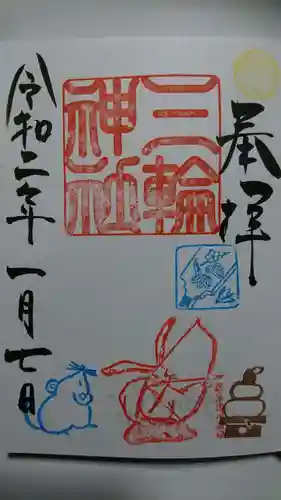 奉拝
三輪神社
令和二年一月七日